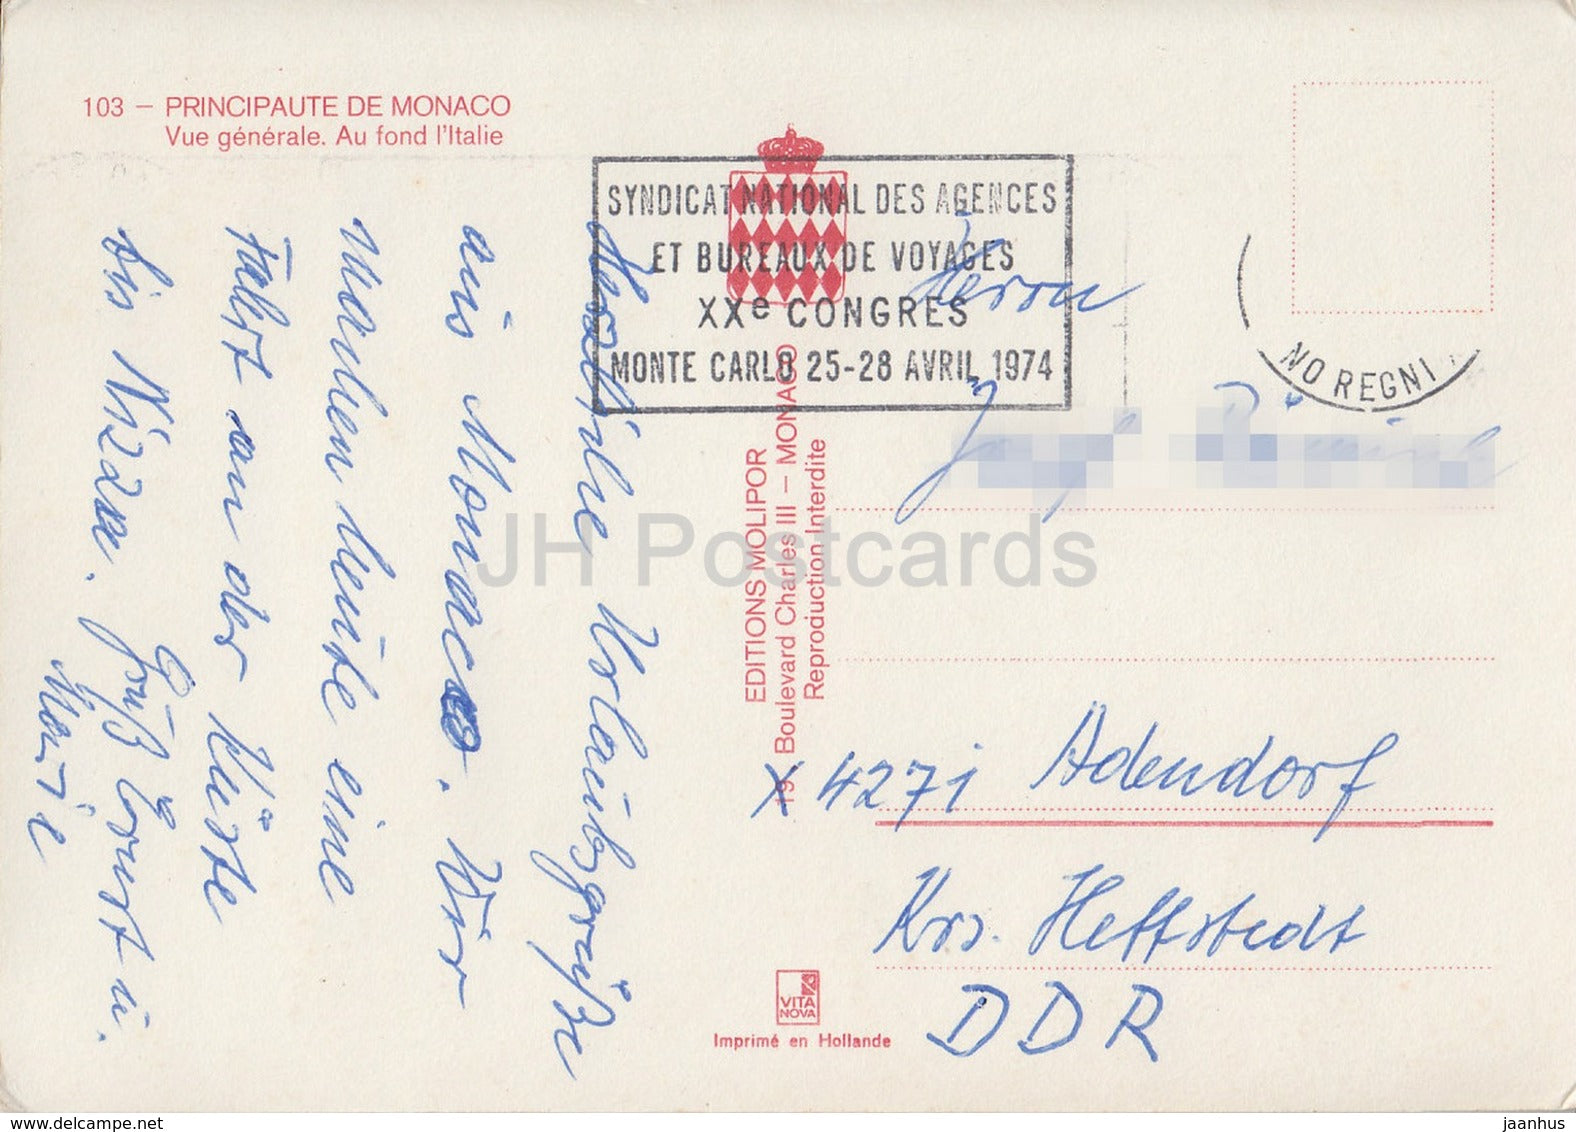 103 – PRINCIPAUTE DE MONACO
Vue générale. Au fond l'Italie
SYNDICAT NATIONAL DES AGENCES
ET BUREAUX DE VOYAGES
XXe CONGRES
MONTE CARLO 25-28 AVRIL 1974
NO REGNI
Herzliche Urlaubsgrüße
aus Monaco. Wir
machen heute eine
Fahrt an der Küste
bis Nizza.
Gruß Ernst u.
Marie
Herrn
X 4271 Adendorf
Krs. Hettstedt
DDR
EDITIONS MOLIPOR
19 Boulevard Charles III – MONACO
Reproduction Interdite
VITA
NOVA
Imprimé en Hollande
JH Postcards
www.delcampe.net
jaanhus